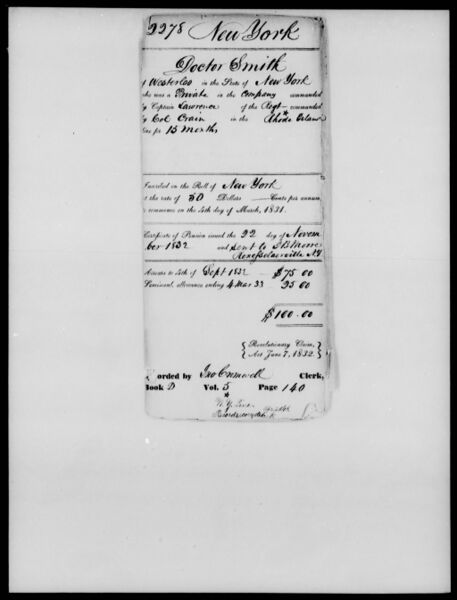 2278 New York
Doctor Smith
of Westerlo in the State of New York
who was a Private in the Company commanded
by Captain Lawrence of the Regt commanded
by Col Crain in the Rhode Island
line for 15 months
Inscribed on the Roll of New York
at the rate of 50 Dollars Cents per annum,
to commence on the 4th day of March, 1831.
Certificate of Pension issued the 22 day of Novem
ber 1832 and sent to
Rensselaerville NY
Arrears to 4th of Sept 1832 $75.00
Semi-anl. allowance ending 4 Mar 33 25.00
$100.00
Revolutionary Claim,
Act June 7, 1832.
orded by Jno Cromwell Clerk,
Book D Vol. 5 Page 140